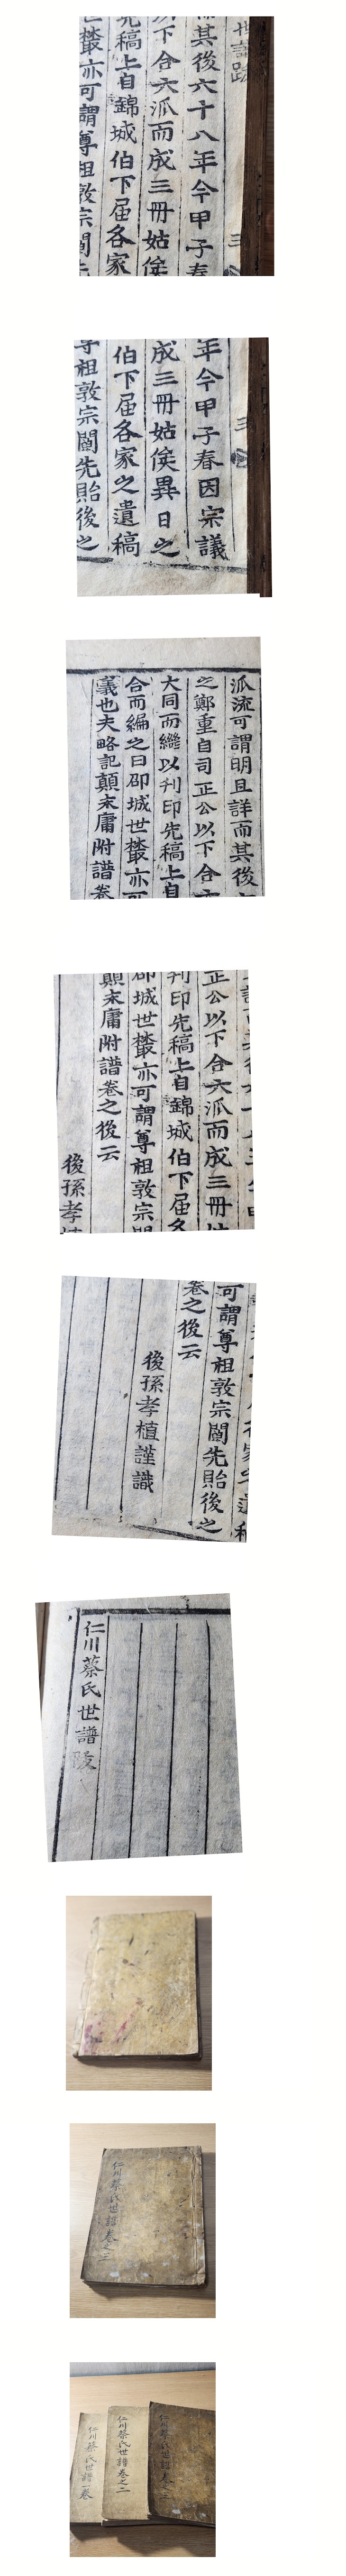 世譜跋
三
其後六十八年今甲子春
以下合六派而成三冊姑俟
稿上自錦城伯下屆各家
樷亦可謂尊祖敦宗闡先
三
年今甲子春因宗議
成三冊姑俟異日之
伯下屆各家之遺稿
尊祖敦宗闡先貽後之
派流可謂明且詳而其後
之鄭重自司正公以下合六
大同而繼以刊印先稿上自
合而編之曰邵城世樷亦可
義也夫略記顛末庸附譜卷
正公以下合六派而成三冊
刊印先稿上自錦城伯下屆各
邵城世樷亦可謂尊祖敦宗闡
顛末庸附譜卷之後云
後孫孝植
可謂尊祖敦宗闡先貽後之
卷之後云
後孫孝植謹識
仁川蔡氏世譜跋
仁川蔡氏世譜卷之三
仁川蔡氏世譜卷之三
仁川蔡氏世譜卷之二
仁川蔡氏世譜一卷